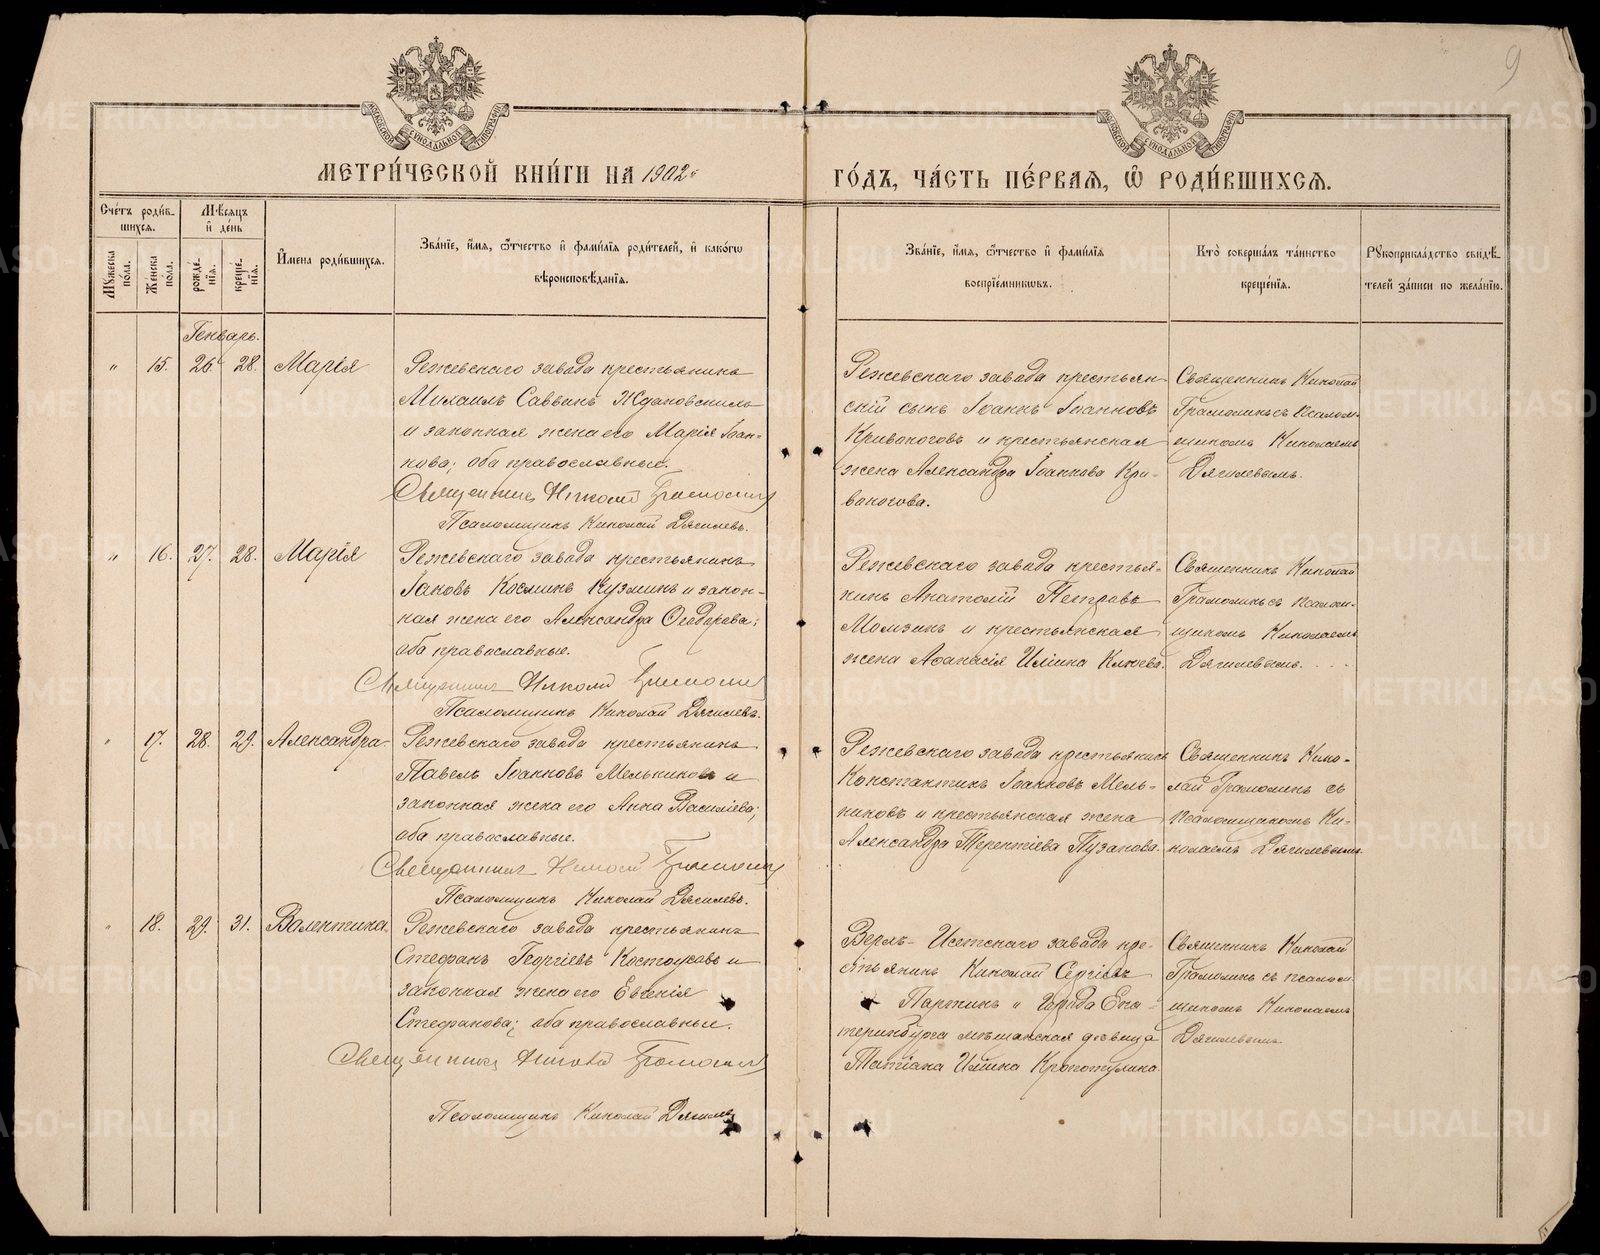 9
МОСКОВСКОЙ СѴНОДАЛЬНОЙ ТИПОГРАФІИ
МОСКОВСКОЙ СѴНОДАЛЬНОЙ ТИПОГРАФІИ
МЕТРИ́ЧЕСКОЙ КНИ́ГИ НА 1902й
ГО́ДЪ, ЧА́СТЬ ПЕ́РВАЯ, Ѿ РОДИ́ВШИХСЯ.
Сче́тъ роди́в-
шихся.
Мꙋжеска по́ла.
Женска по́ла.
Мѣ́сяцъ
и҆ де́нь
рожде́нїя.
креще́нїя.
И҆мена роди́вшихся.
Зва́нїе, и҆́мя, ѻ҆́тчество и҆ фами́лїя роди́телей, и҆ како́гѡ
вѣроисповѣ́данїя.
Зва́нїе, и҆́мя, ѻ҆́тчество и҆ фами́лїя
воспрїе́мникѡвъ.
Кто̀ соверша́лъ та́инство
креще́нїя.
Рꙋкоприкла́дство свидѣ́-
телей за́писи по жела́нїю.
Генварь.
" 15. 26. 28. Марія
Режевскаго завода крестьянинъ
Михаилъ Саввинъ Ждановскихъ
и законная жена его Марія Іоан-
нова; оба православные.
Священникъ Николай Грамолинъ
Псаломщикъ Николай Дягилевъ.
Режевскаго завода крестьян-
скій сынъ Іоаннъ Іоанновъ
Кривоноговъ и крестьянская
жена Александра Іоаннова Кри-
воногова.
Священникъ Николай
Грамолинъ съ псалом-
щикомъ Николаемъ
Дягилевымъ.
" 16. 27. 28. Марія
Режевскаго завода крестьянинъ
Іаковъ Косминъ Кузминъ и закон-
ная жена его Александра Ѳеодорова;
оба православные.
Священникъ Николай Грамолинъ
Псаломщикъ Николай Дягилевъ.
Режевскаго завода крестья-
нинъ Анатолій Петровъ
Мокзинъ и крестьянская
жена Аѳанасія Иліина Клюева.
Священникъ Николай
Грамолинъ съ псалом-
щикомъ Николаемъ
Дягилевымъ.
" 17. 28. 29. Александра
Режевскаго завода крестьянинъ
Павелъ Іоанновъ Мельниковъ и
законная жена его Анна Василіева;
оба православные.
Священникъ Николай Грамолинъ
Псаломщикъ Николай Дягилевъ.
Режевскаго завода крестьянинъ
Константинъ Іоанновъ Мель-
никовъ и крестьянская жена
Александра Терентіева Пузанова.
Священникъ Нико-
лай Грамолинъ съ
псаломщикомъ Ни-
колаемъ Дягилевымъ.
" 18. 29. 31. Валентина.
Режевскаго завода крестьянинъ
Стефанъ Георгіевъ Костоусовъ и
законная жена его Евгенія
Стефанова; оба православные.
Священникъ Николай Грамолинъ
Псаломщикъ Николай Дягилевъ
Верхъ-Исетскаго завода кре-
стьянинъ Николай Сергіевъ
Паркинъ и города Ека-
теринбурга мѣщанская дѣвица
Татіана Иліина Кропотухина.
Священникъ Николай
Грамолинъ съ псалом-
щикомъ Николаемъ
Дягилевымъ
METRIKI.GASO-URAL.RU